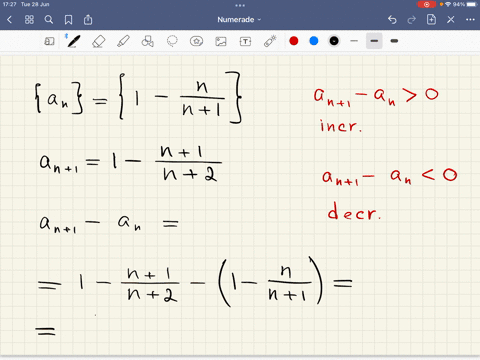 17:27 Tue 28 Jun
94%
Numerade
{aₙ} = {1 - n/(n+1)}
aₙ₊₁ - aₙ > 0
incr.
aₙ₊₁ = 1 - (n+1)/(n+2)
aₙ₊₁ - aₙ < 0
decr.
aₙ₊₁ - aₙ =
= 1 - (n+1)/(n+2) - (1 - n/(n+1)) =
=